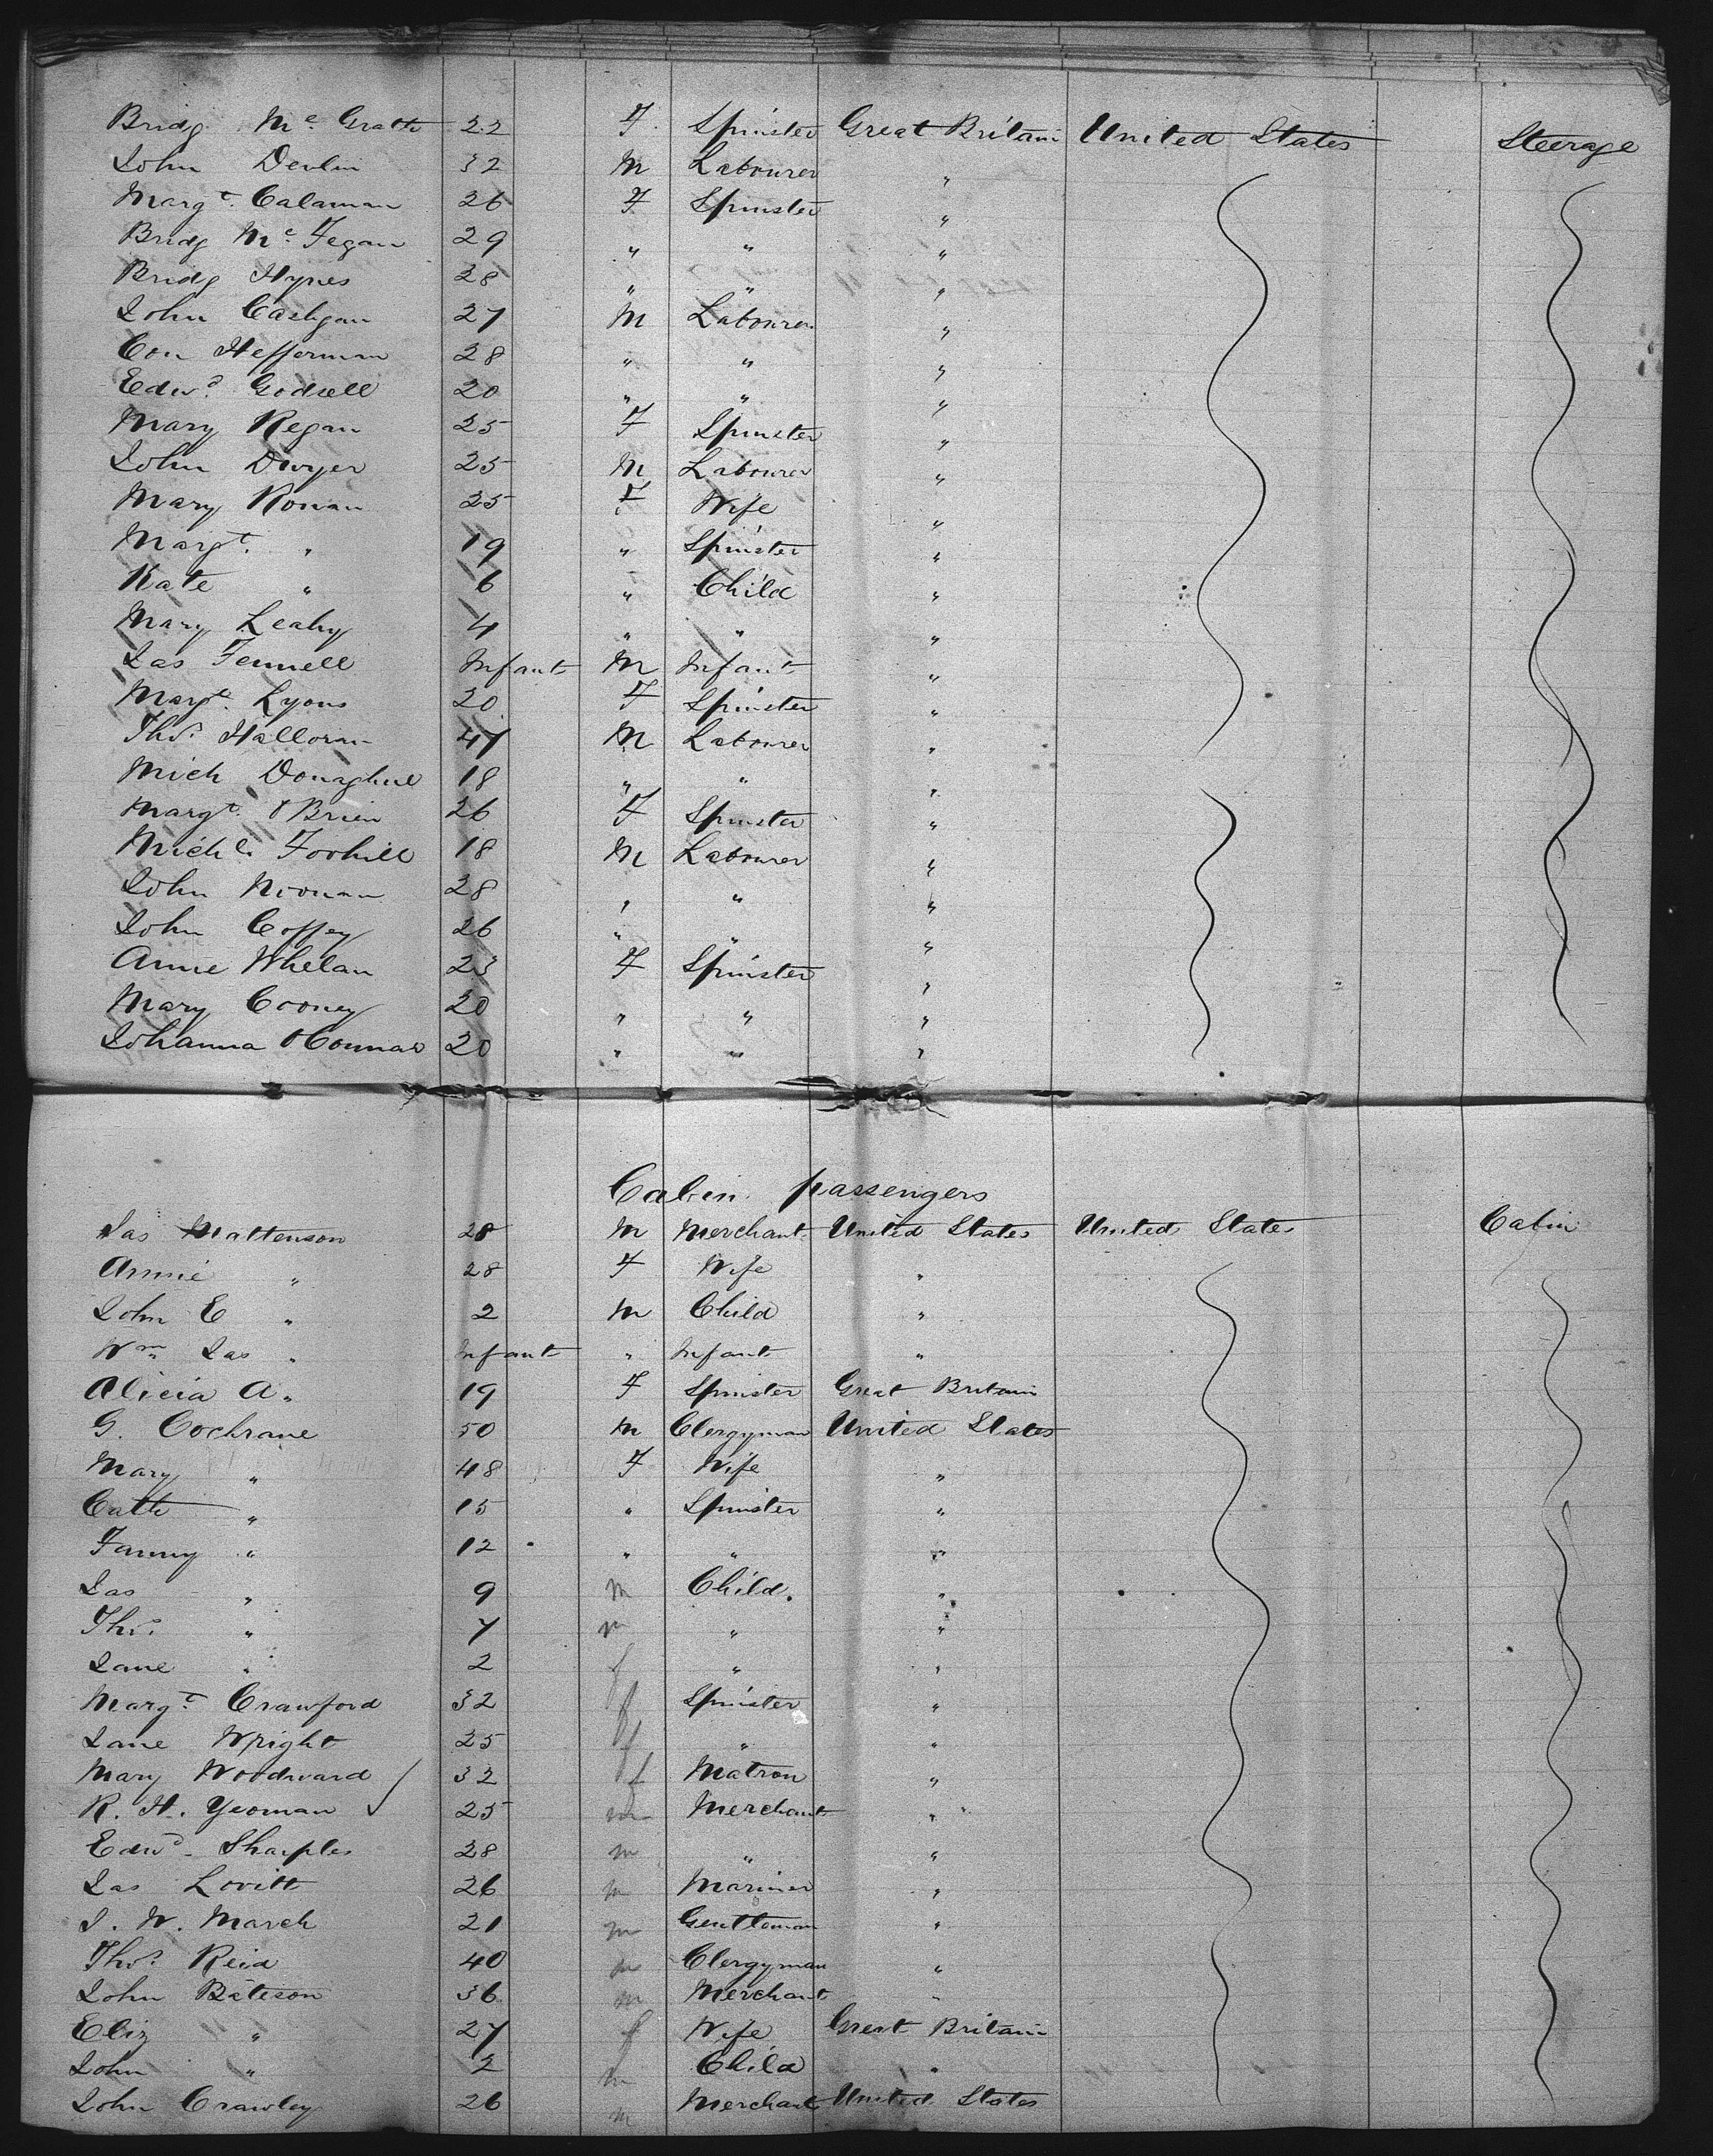 Bridg. Mc. Grath 22 F. Spinster Great Britain United States Steerage
John Devlin 32 M Labourer "
Margt. Calaman 26 F Spinster "
Bridg Mc. Fegan 29 " " "
Bridg Hynes 28 " " "
John Cashgan 27 M Labourer "
Con Heffernan 28 " " "
Edwd. Godsell 20 " " "
Mary Regan 25 F Spinster "
John Dwyer 25 M Labourer "
Mary Ronan 25 F Wife "
Margt. " 19 " Spinster "
Kate " 6 " Child "
Mary Leahy 4 " " "
Jas Fennell Infant M Infant "
Margt. Lyons 20 F Spinster "
Thos. Halloran 47 M Labourer "
Mich Donaghue 18 " " "
Margt. OBrien 26 F Spinster "
Michl. Foohill 18 M Labourer "
John Noonan 28 " " "
John Coffey 26 " " "
Anne Whelan 23 F Spinster "
Mary Cooney 20 " " "
Johanna OConnar 20 " " "
Cabin passengers
Jas Mattenson 28 M Merchant United States United States Cabin
Annie " 28 F Wife "
John E " 2 M Child "
Wm Jas " Infant " Infant "
Alicia A " 19 F Spinster Great Britain
G. Cochrane 50 M Clergyman United States
Mary " 48 F Wife "
Cath " 15 " Spinster "
Fanny " 12 " " "
Jas " 9 m Child "
Thos. " 7 m " "
Jane " 2 f " "
Margt. Crawford 32 f Spinster "
Jane Wright 25 f " "
Mary Woodward 32 f Matron "
R. H. Yeoman 25 m Merchant "
Edwd. Sharples 28 m " "
Jas Lovitt 26 m Mariner "
J. W. March 21 m Gentleman "
Thos. Reid 40 m Clergyman "
John Bateson 36 m Merchant "
Eliz " 27 f Wife Great Britain
John " 2 m Child "
John Crawley 26 m Merchant United States